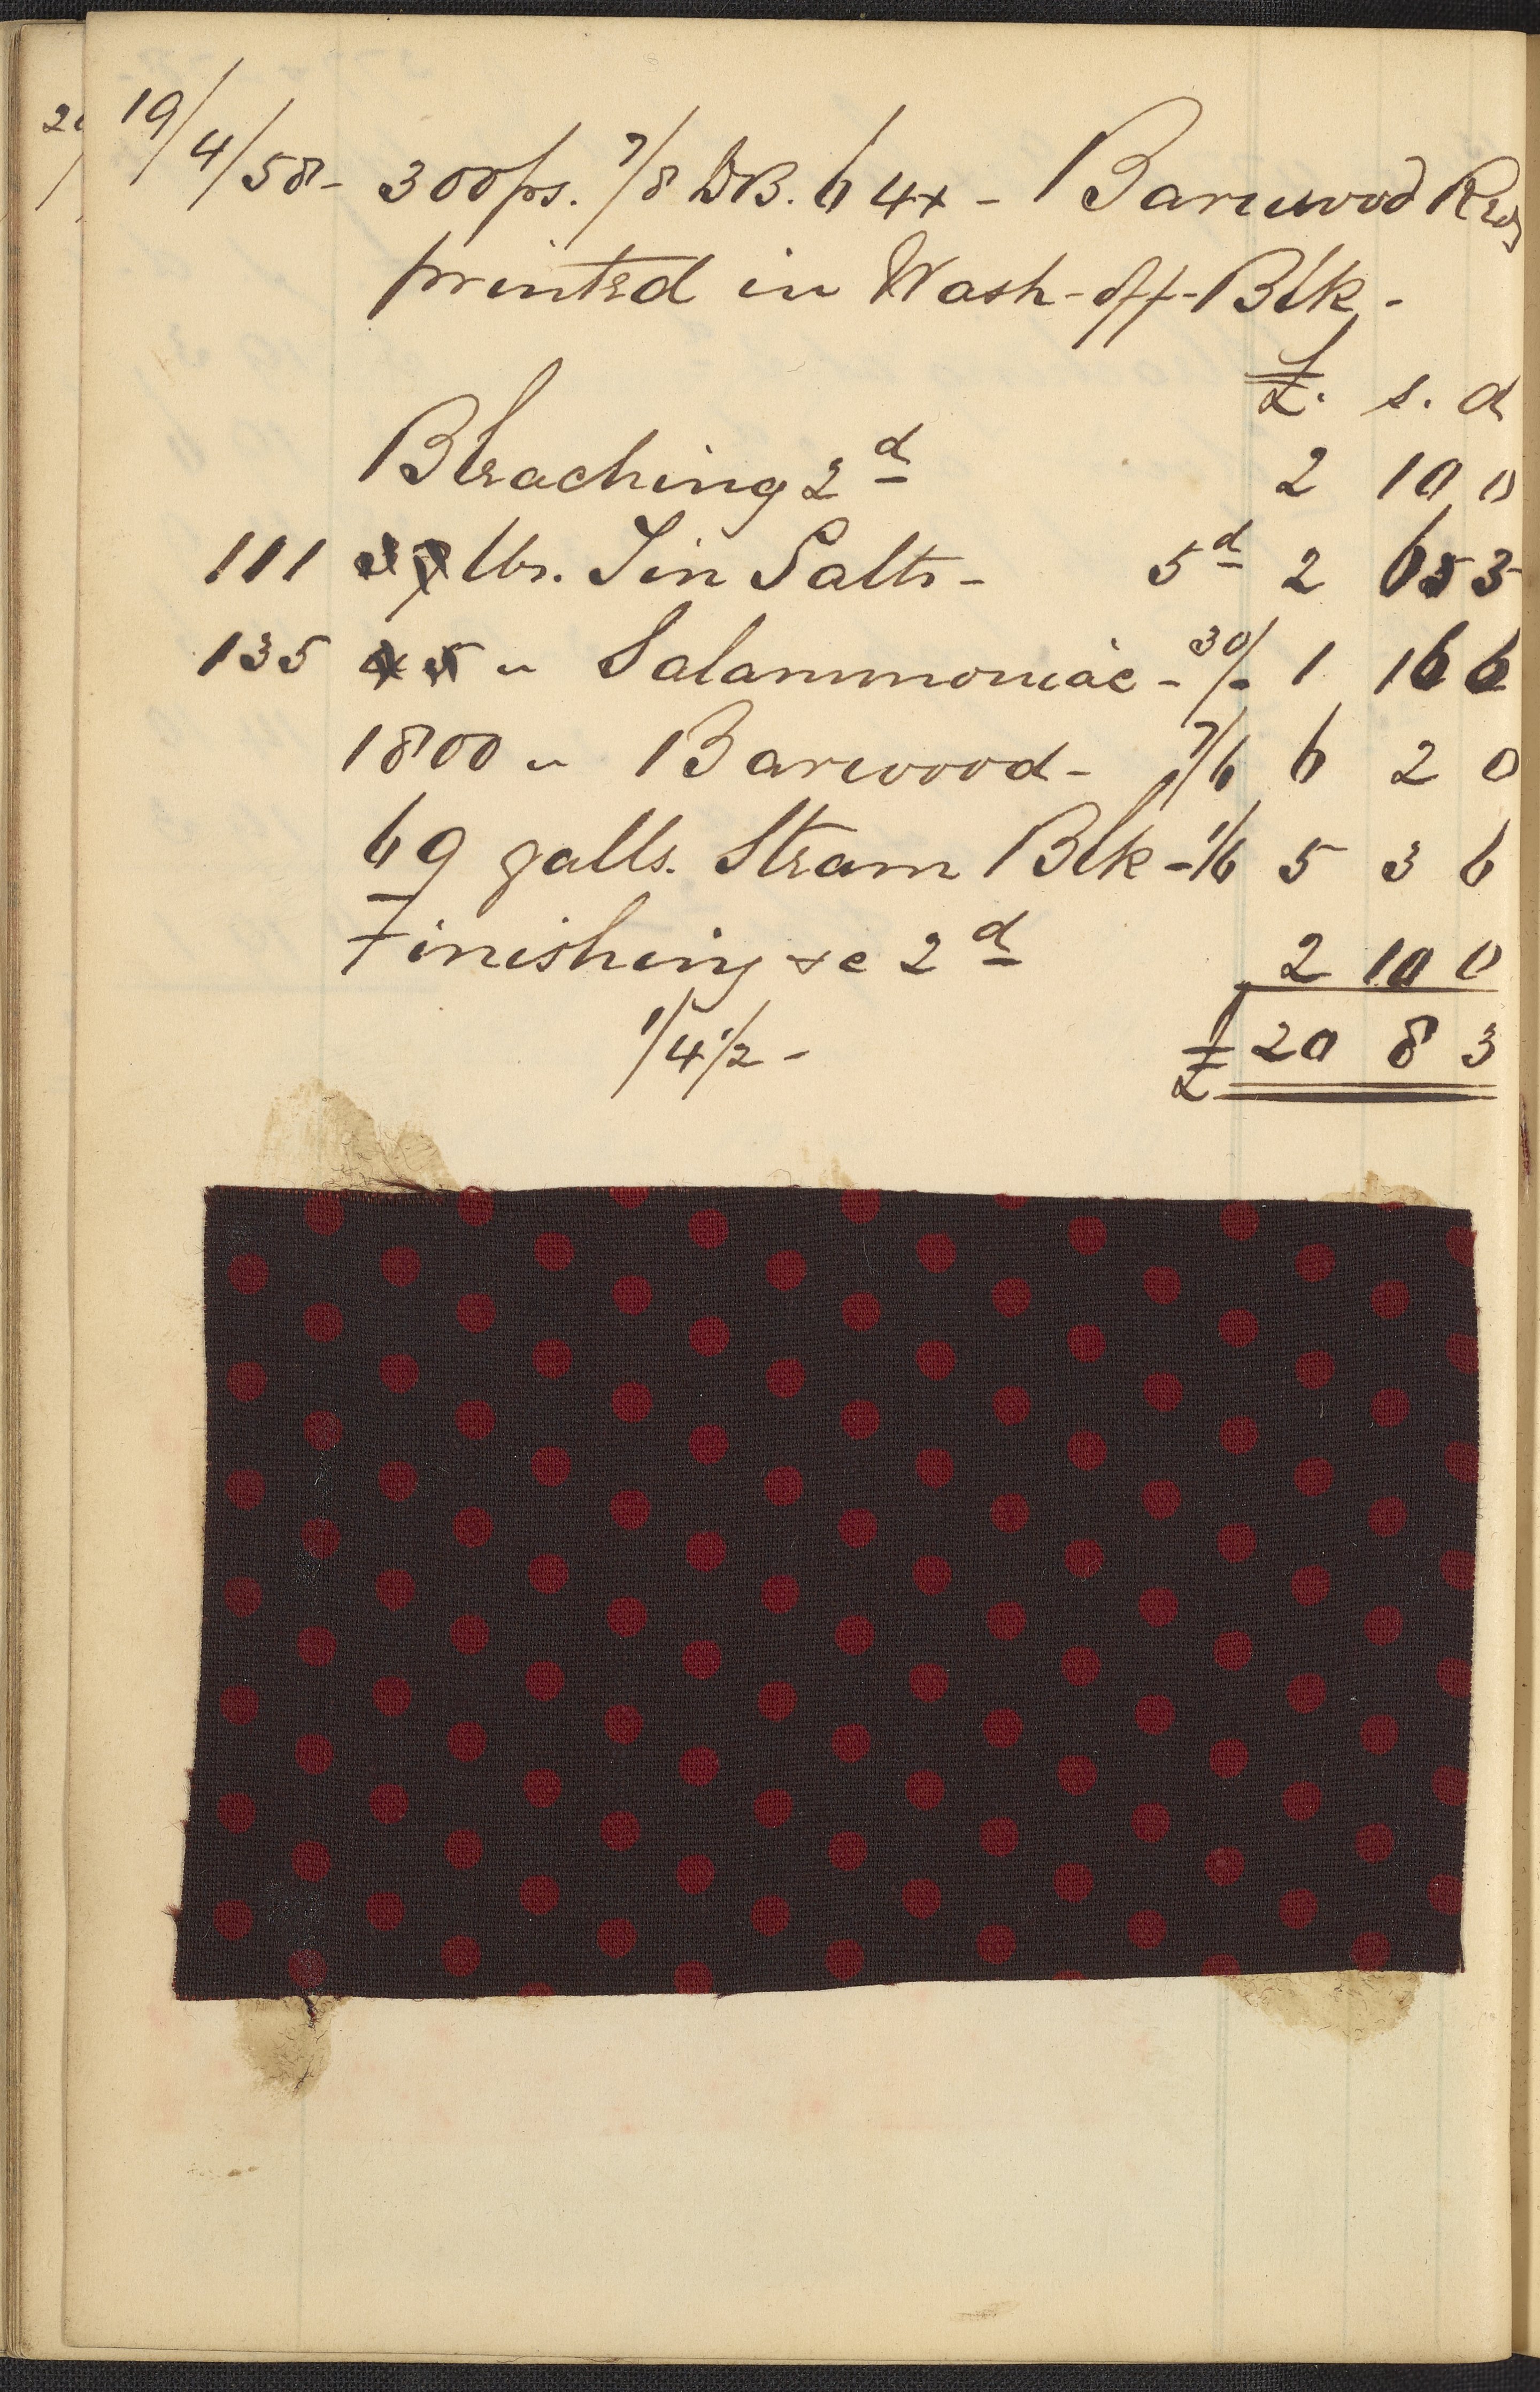 19/4/58 - 300 ps. 7/8 DB. 64x - Barwood Red
printed in Wash-off-Blk -
£. s. d
Bleaching 2d 2 10 0
111 lbs. Tin Salts - 5d 2 6 3
135 " Salammoniac - 30/- 1 16 6
1800 " Barwood - 7/6 6 2 0
69 galls. Steam Blk - 1/6 5 3 6
Finishing &c 2d 2 10 0
1/4 1/2 - £ 20 8 3